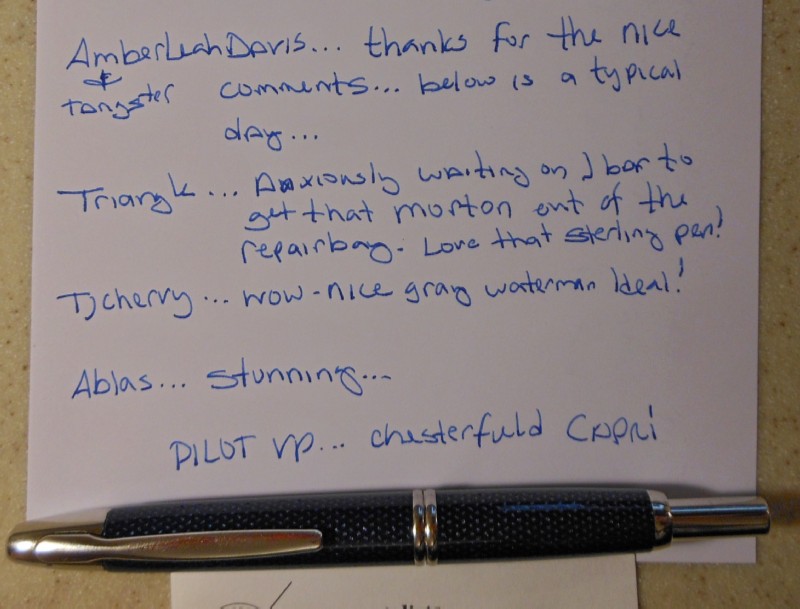 AmberLeahDavis... thanks for the nice
& tangster comments... below is a typical
day...
Triangle... Anxiously waiting on J bar to
get that morton out of the
repairbag. Love that sterling pen!
Tjcherry... wow-nice gray waterman Ideal!
Ablas... stunning...
PILOT VP... chesterfield Capri